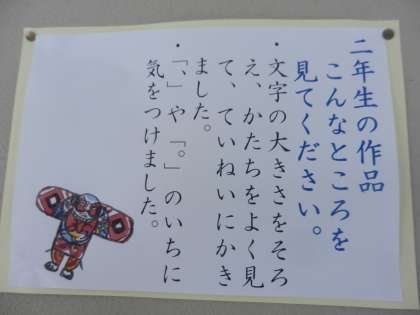 二年生の作品
こんなところを
見てください。
・文字の大きさをそろ
え、かたちをよく見
て、ていねいにかき
ました。
・「、」や「。」のいちに
気をつけました。